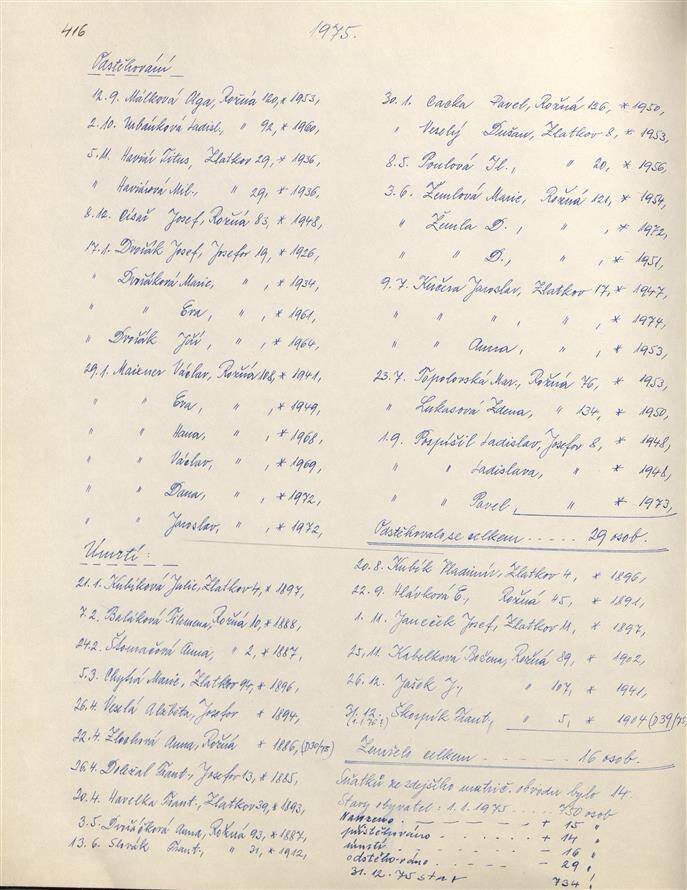 416
1975.
Odstěhování
12.9. Málková Olga, Rožná 120, * 1953,
2.10. Urbánková Ladisl., " 92, * 1960,
5.11. Haviár Titus, Zlatkov 29, * 1936,
" Haviárová Mil., " 29, * 1936,
8.12. Císař Josef, Rožná 83, * 1948,
17.1. Dvořák Josef, Josefov 19, * 1926,
" Dvořáková Marie, " , * 1934,
" " Eva, " , * 1961,
" Dvořák Jiří, " , * 1964,
29.1. Maixner Václav, Rožná 108, * 1941,
" " Eva, " , * 1949,
" " Hana, " , * 1968,
" " Václav, " , * 1969,
" " Dana, " , * 1972,
" " Jaroslav, " , * 1972,
30.1. Cacka Pavel, Rožná 126, * 1950,
" Veselý Dušan, Zlatkov 8, * 1953,
8.5. Poulová Jl., " 20, * 1956,
3.6. Žemlová Marie, Rožná 121, * 1954,
" Žemla D., " , * 1972,
" " D., " , * 1951,
9.7. Kučera Jaroslav, Zlatkov 17, * 1947,
" " " , " , * 1974,
" " Anna, " , * 1953,
23.7. Topolovská Mar., Rožná 76, * 1953,
" Lukasová Zdena, " 134, * 1950,
1.9. Pospíšil Ladislav, Josefov 8, * 1948,
" " Ladislava, " * 1948,
" " Pavel, " * 1973,
Odstěhovalo se celkem ..... 29 osob.
Úmrtí:
21.1. Kubíková Julie, Zlatkov 4, * 1897,
7.2. Baláková Filomena, Rožná 10, * 1888,
24.2. Slomačová Anna, " 2, * 1887,
5.3. Chytrá Marie, Zlatkov 94, * 1896,
26.4. Veselá Alžběta, Josefov * 1894,
22.4. Zlochová Anna, Rožná * 1886, (D30/75)
26.4. Doležal Frant., Josefov 13, * 1885,
20.4. Havelka Frant., Zlatkov 39, * 1893,
3.5. Dvořáčková Anna, Rožná 93, * 1887,
13.6. Slovák Frant., " 31, * 1912,
20.8. Kubík Vladimír, Zlatkov 4, * 1896,
22.9. Hlávková E., Rožná 45, * 1891,
1.11. Janeček Josef, Zlatkov 11, * 1897,
25.11. Kabelková Božena, Rožná 89, * 1902,
26.12. Jašek J., " 107, * 1941,
31.12. Skorpík Frant., " 5, * 1904 (D39/75)
Zemřelo celkem ..... 16 osob.
Sňatků ze zdejšího matrič. obvodu bylo 14.
Stavy obyvatel: 1.1.1975 ..... 750 osob
Narozeno ..... + 15 "
přistěhováno ..... + 14 "
úmrtí ..... - 16 "
odstěhováno ..... - 29 "
31.12.75 stav 734 !